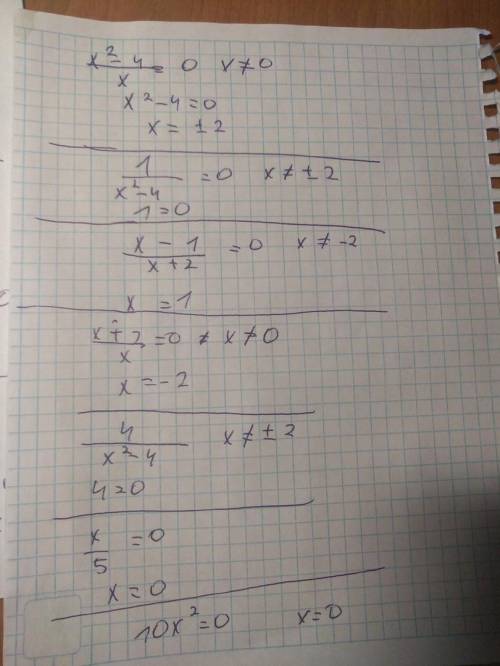 x² - 4 / x = 0 x ≠ 0
x² - 4 = 0
x = ± 2
1 / x² - 4 = 0 x ≠ ± 2
1 = 0
x - 1 / x + 2 = 0 x ≠ -2
x = 1
x + 2 / x = 0 x ≠ 0
x = -2
4 / x² - 4 x ≠ ± 2
4 = 0
x / 5 = 0
x = 0
10x² = 0 x = 0